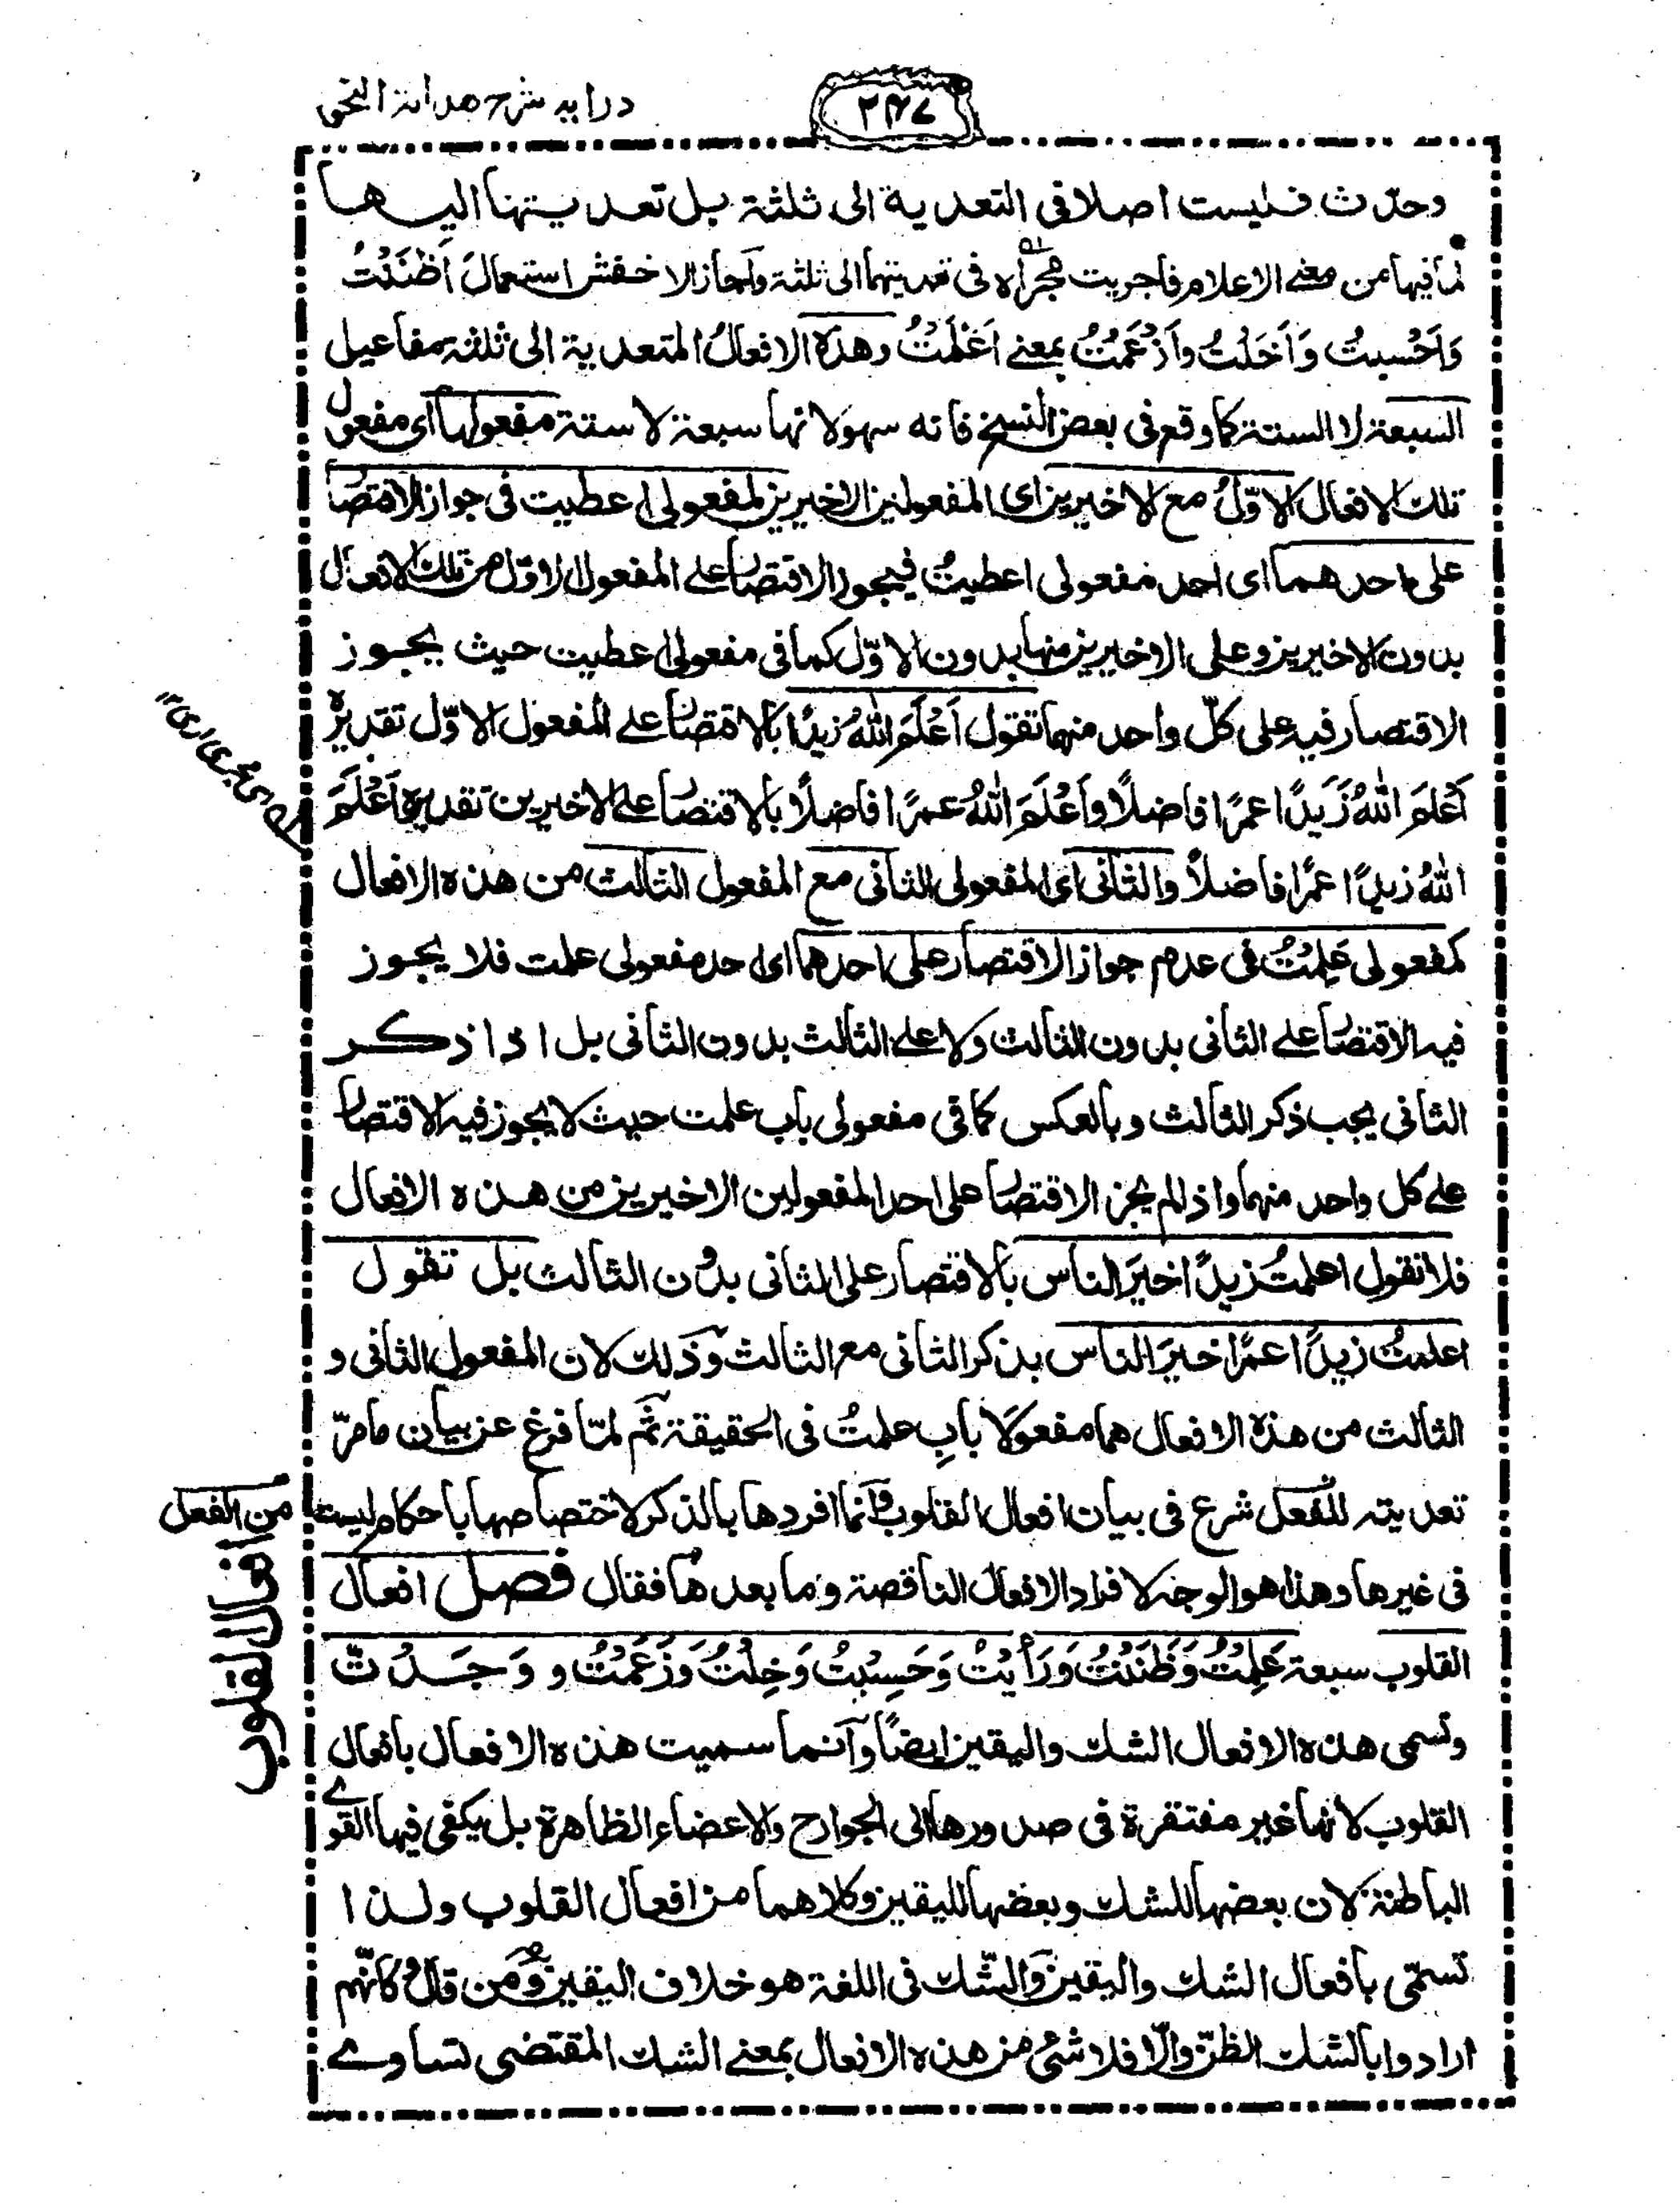 درایہ شرح ہدایۃ النحو
۲۴۷
وحدّث فلیست اصلا فی التعدیۃ الی ثلثۃ بل تعدیتہا الیہا
لما فیہا من معنے الاعلام فاجریت مجراہ فی تعدیتہا الی ثلثۃ واجاز الاخفش استعمالَ اَظْنَنْتُ
وَاَحْسبتُ وَاَخَلْتُ واَزْعَمْتُ بمعنے اَعْلَمْتُ وھذہ الافعالُ المتعدیۃ الی ثلثۃ مفاعیل
السبعۃ لا الستۃ کما وقع فی بعض النسخ فانہ سہو لانہا سبعۃ لا ستۃ مفعولہا ای مفعول
تلک الافعال الاوّلُ مع الاخیرین ای المفعولین الاخیرین لمفعولی اعطیت فی جواز الاقتصار
علی احدھما ای احد مفعولی اعطیتُ فیجوز الاقتصار علے المفعول الاوّل من تلک الافعال
بدون الاخیرین وعلی الاخیرین منہا بدون الاوّل کما فی مفعولی اعطیت حیث یجوز
الاقتصار فیہ علی کلّ واحد منہما تقول اَعْلَمَ اللّٰہُ زیدًا بالاقتصار علے المفعول الاوّل تقدیرہٗ
اَعْلَمَ اللّٰہُ زَیدًا عمرًا فاضلًا واَعْلَمَ اللّٰہُ عمرًا فاضلًا بالاقتصار علے الاخیرین تقدیرہ اَعْلَمَ
اللّٰہُ زیدًا عمرًا فاضلاً والثانی ای المفعولی الثانی مع المفعول الثالث من ھذہ الافعال
کمفعولی عَلِمْتُ فی عدم جواز الاقتصار علی احدھما ای احد مفعولی علمت فلا یجوز
فیہ الاقتصار علے الثانی بدون الثالث ولا علے الثالث بدون الثانی بل اذا ذکر
الثانی یجب ذکر الثالث وبالعکس کما فی مفعولی باب علمت حیث لا یجوز فیہ الاقتصار
علے کل واحد منہما واذا لم یجز الاقتصار علی احد المفعولین الاخیرین من ھذہ الافعال
فلا تقول اعلمتُ زیدًا خیرَ الناس بالاقتصار علی الثانی بدون الثالث بل تقول
اعلمتُ زیدًا عمرًا خیرَ الناس بذکر الثانی مع الثالث وذٰلک لان المفعول الثانی و
الثالث من ھذہ الافعال ھما مفعولَا بابِ علمتُ فی الحقیقۃ ثم لمّا فرغ عن بیان مامرّ
تعدیتہ للفعل شرع فی بیان افعال القلوب وانما افردھا بالذکر لاختصاصہا باحکام لیست
من الفعل
فی غیرھا وھذا ھو الوجہ لافراد الافعال الناقصۃ وما بعدھا فقال فصل افعال
افعال القلوب
القلوب سبعۃ عَلِمْتُ وَظَنَنْتُ وَرَأَیْتُ وَحَسِبْتُ وَخِلْتُ وَزَعَمْتُ و وَجَدْتُّ
وتسمی ھذہ الافعال الشک والیقین ایضًا وانما سمیت ھذہ الافعال بافعال
القلوب لانہا غیر مفتقرۃ فی صدورھا الی الجوارح والاعضاء الظاھرۃ بل یکفی فیہا القوے
الباطنۃ لان بعضہا للشک وبعضہا للیقین وکلاھما من افعال القلوب ولذا
تسمّی بافعال الشک والیقین والشّک فی اللغۃ ھو خلاف الیقین ومن قال کانّہم
ارادوا بالشک الظنّ والّا فلا شئ من ھذہ الافعال بمعنے الشک المقتضی تساوے